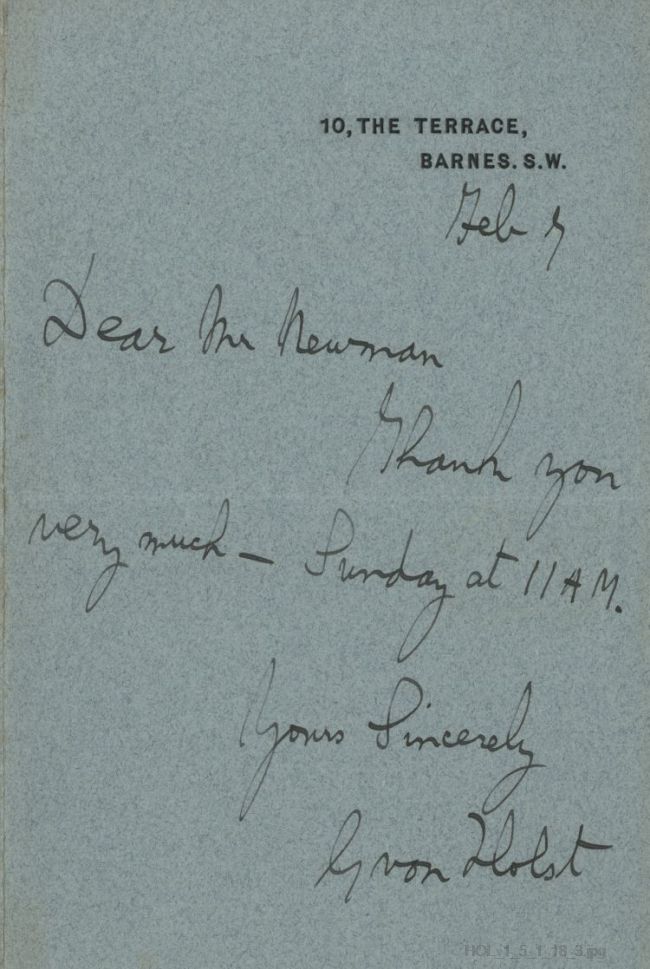 10, THE TERRACE,
BARNES. S.W.
Feb 7
Dear Mr Newman
Thank you
very much – Sunday at 11 AM.
Yours Sincerely
G von Holst
HOL_1_5_1_18_3.jpg